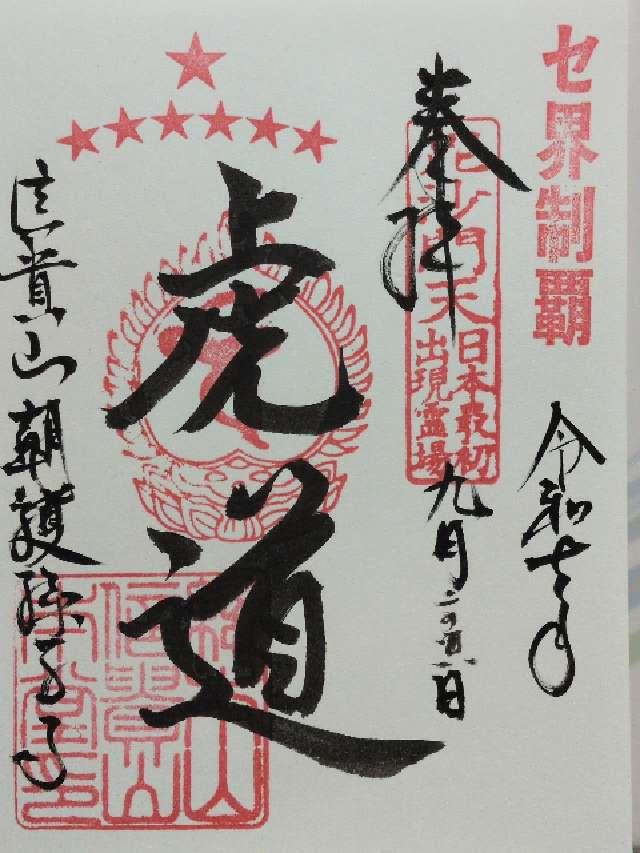 セ界制覇
令和七年
奉拝
毘沙門天
日本最初
出現霊場
九月二十六日
虎道
信貴山朝護孫子寺